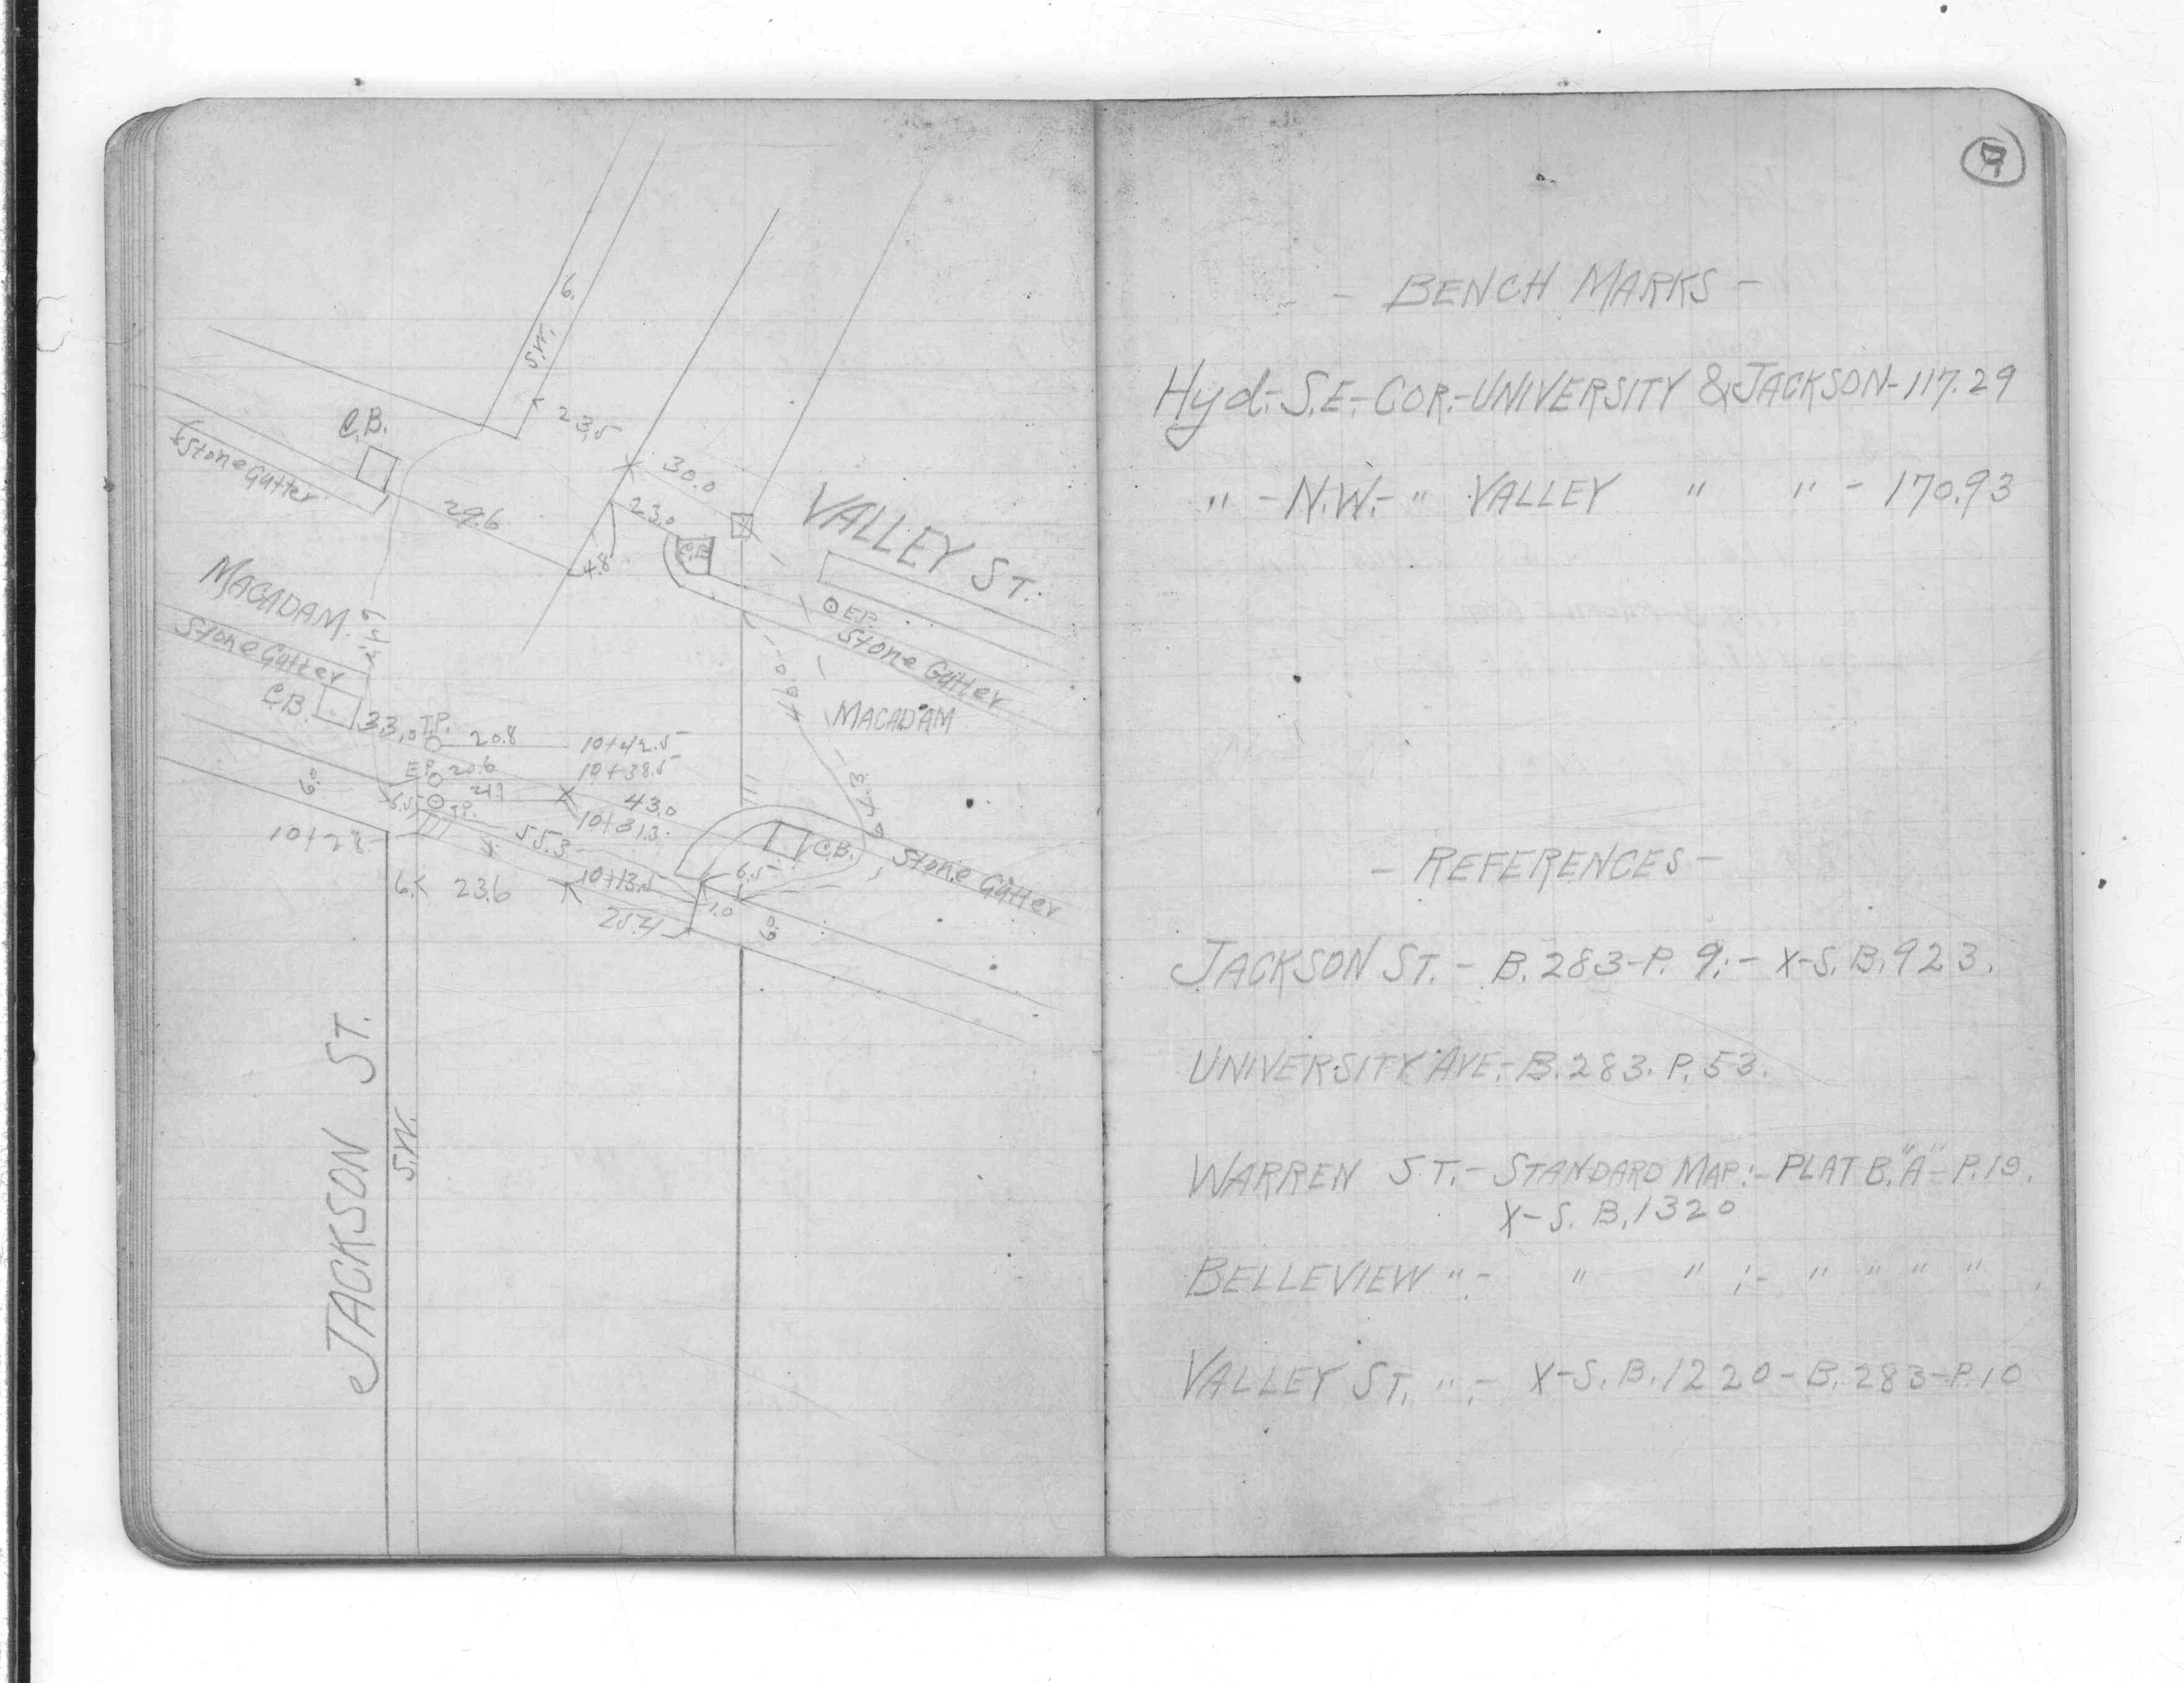 6.
S.W.
23.5
C.B.
Stone Gutter
30.0
29.6
23.0
VALLEY ST.
4.8
MACADAM
E.P.
Stone Gutter
Stone Gutter
C.B.
33.0 T.P. 20.8 10+42.5
MACADAM
E.P. 20.6 10+38.5
6.0
6.5 T.P. 43.0
10+31.3
64.3
10+28
55.3
C.B.
Stone Gutter
6. 23.6 10+13.5 6.5
1.0
25.4
6.0
JACKSON ST.
S.W.
- BENCH MARKS -
Hyd:- S.E.- COR.- UNIVERSITY & JACKSON - 117.29
" - N.W.- " VALLEY " " - 170.93
- REFERENCES -
JACKSON ST. - B. 283-P. 9;- X-S. B. 923.
UNIVERSITY AVE.- B. 283. P. 53.
WARREN ST.- STANDARD MAP:- PLAT B. "A" - P. 19.
X-S. B. 1320
BELLEVIEW " :- " " ;- " " " " .
VALLEY ST. " :- X-S. B. 1220 - B. 283-P. 10